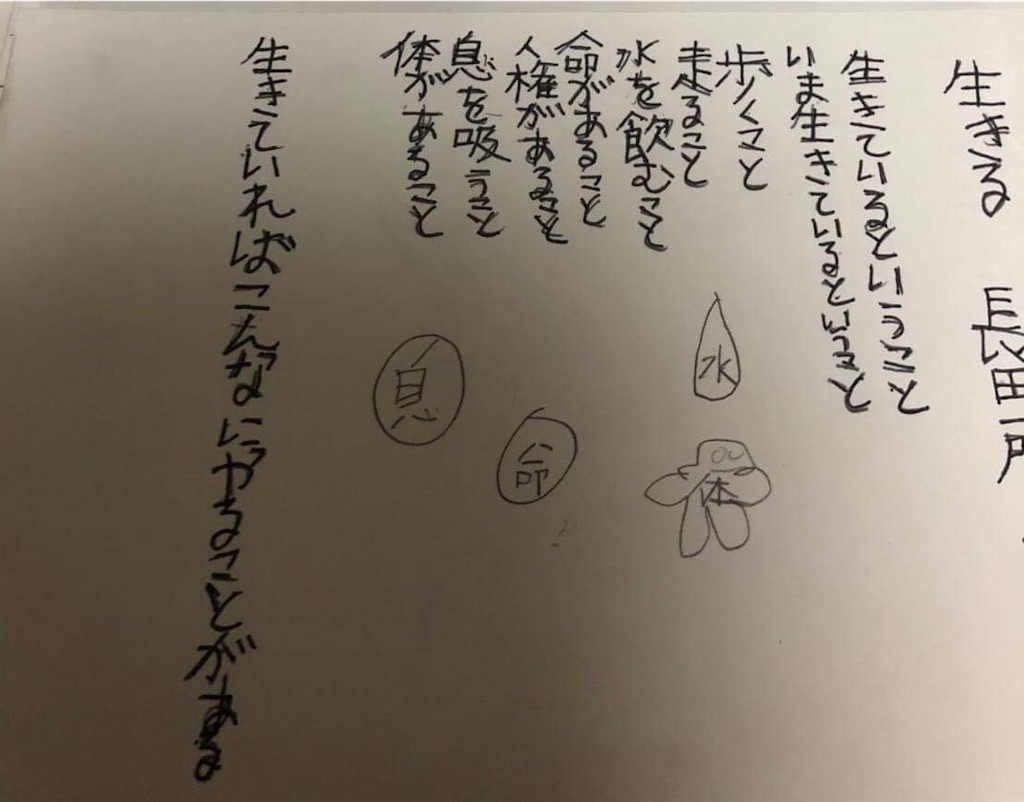 生きる　長田
生きているということ
いま生きているということ
歩くこと
走ること
水を飲むこと
命があること
人権があること
息を吸うこと
体があること
水
体
命
息
生きていればこんなにやることがある